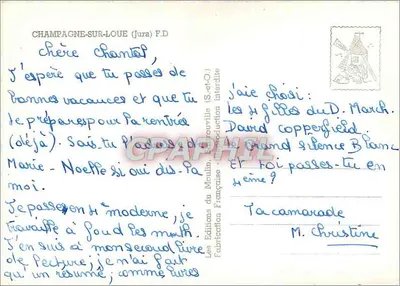 CHAMPAGNE-SUR-LOUE (Jura) F.D
Chère Chantal,
J'espère que tu passes de
bonnes vacances et que tu
te prépares pour la rentrée
(déjà). Sais-tu l'adresse de
Marie-Noelle si oui dis-la
moi.
Je passe en 4e moderne, je
travaille à fond les math.
J'en suis à mon second livre
de lecture, je n'ai fait
qu'un résumé; comme livres
Les Editions du Moulin
Fabrication Française - Reproduction interdite
CPAPHIL
j'aie choisi:
les 4 filles du D. March.
David Copperfield
Le grand silence Blanc
et toi passes-tu en
4ème?
Ta camarade
M. Christine